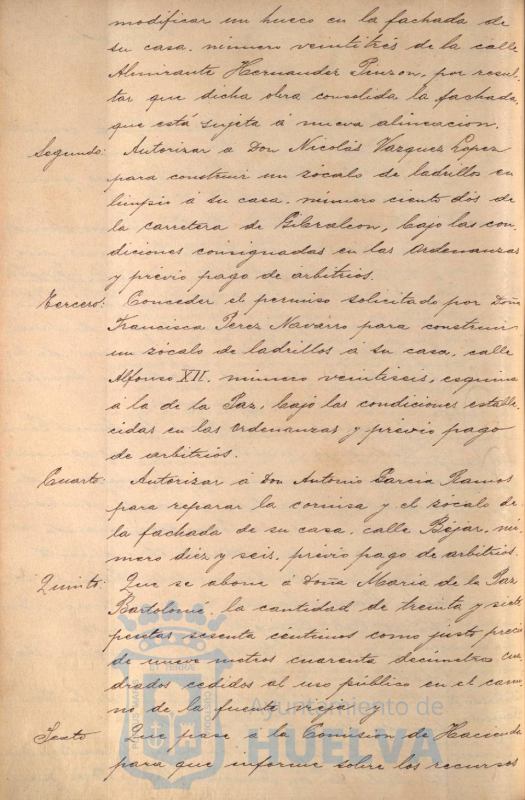 modificar un hueco en la fachada de
su casa, número veintitrés de la calle
Almirante Hernandez Pinzon, por resul-
tar que dicha obra consolida la fachada,
que está sujeta á nueva alineacion.
Segundo: Autorizar á Don Nicolás Vazquez Lopez
para construir un zócalo de ladrillos en
limpio á su casa, número ciento dos de
la carretera de Gibraleon, bajo las con-
diciones consignadas en las ordenanzas
y previo pago de arbitrios.
Tercero: Conceder el permiso solicitado por Doña
Francisca Perez Navarro para construir
un zócalo de ladrillos á su casa, calle
Alfonso XII, número veintiseis, esquina
á la de la Paz, bajo las condiciones estable-
cidas en las ordenanzas y previo pago
de arbitrios.
Cuarto: Autorizar á Don Antonio Garcia Ramos
para reparar la cornisa y el zócalo de
la fachada de su casa, calle Béjar, nú-
mero diez y seis, previo pago de arbitrios.
Quinto: Que se abone á Doña Maria de la Paz
Bartolomé, la cantidad de treinta y siete
pesetas sesenta céntimos como justo precio
de nueve metros cuarenta decímetros cua-
drados cedidos al uso público en el cami-
no de la fuente vieja; y
Sexto Que pase á la Comisión de Hacienda
para que informe sobre los recursos
Ayuntamiento de
HUELVA